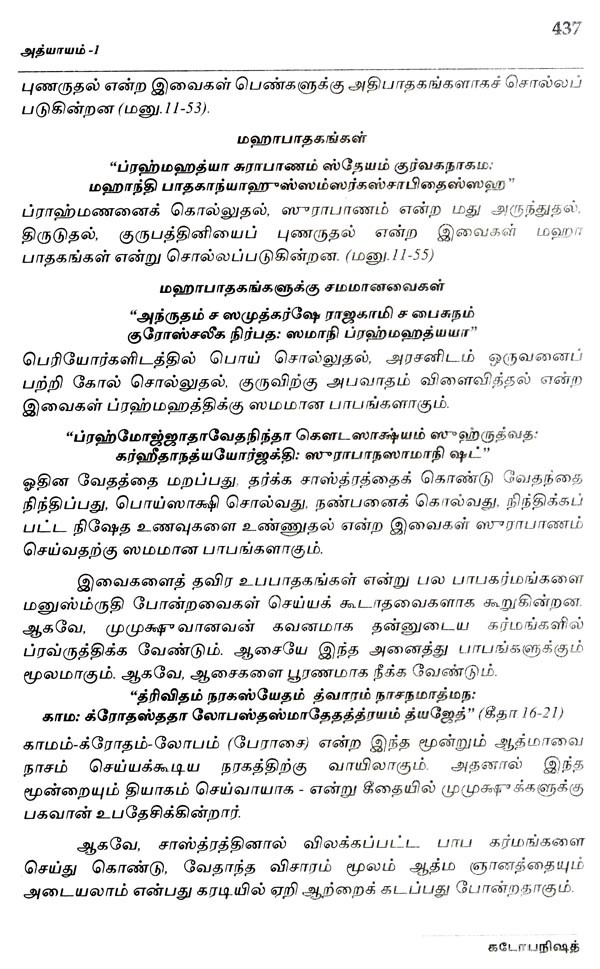 437
அத்யாயம் -1
புணருதல் என்ற இவைகள் பெண்களுக்கு அதிபாதகங்களாகச் சொல்லப்
படுகின்றன (மனு.11-53).
மஹாபாதகங்கள்
“ப்ரஹ்மஹத்யா சுராபாணம் ஸ்தேயம் குர்வகநாகம:
மஹாந்தி பாதகாந்யாஹுஸ்ஸம்ஸர்கஸ்சாபிதைஸ்ஸஹ”
ப்ராஹ்மணனைக் கொல்லுதல், ஸுராபாணம் என்ற மது அருந்துதல்,
திருடுதல், குருபத்தினியைப் புணருதல் என்ற இவைகள் மஹா
பாதகங்கள் என்று சொல்லப்படுகின்றன. (மனு.11-55)
மஹாபாதகங்களுக்கு சமமானவைகள்
“அந்ருதம் ச ஸமுத்கர்ஷே ராஜகாமி ச பைசுநம்
குரோஸ்சலீக நிர்பத: ஸமாநி ப்ரஹ்மஹத்யயா”
பெரியோர்களிடத்தில் பொய் சொல்லுதல், அரசனிடம் ஒருவனைப்
பற்றி கோல் சொல்லுதல், குருவிற்கு அபவாதம் விளைவித்தல் என்ற
இவைகள் ப்ரஹ்மஹத்திக்கு ஸமமான பாபங்களாகும்.
“ப்ரஹ்மோஜ்ஜாதாவேதநிந்தா கௌடஸாக்ஷ்யம் ஸுஹ்ருத்வத:
கர்ஹீதாநத்யயோர்ஜக்தி: ஸுராபாநஸாமாநி ஷட்”
ஓதின வேதத்தை மறப்பது, தர்க்க சாஸ்த்ரத்தைக் கொண்டு வேதந்தை
நிந்திப்பது, பொய்ஸாக்ஷி சொல்வது, நண்பனைக் கொல்வது, நிந்திக்கப்
பட்ட நிஷேத உணவுகளை உண்ணுதல் என்ற இவைகள் ஸுராபாணம்
செய்வதற்கு ஸமமான பாபங்களாகும்.
இவைகளைத் தவிர உபபாதகங்கள் என்று பல பாபகர்மங்களை
மனுஸ்ம்ருதி போன்றவைகள் செய்யக் கூடாதவைகளாக கூறுகின்றன.
ஆகவே, முமுக்ஷுவானவன் கவனமாக தன்னுடைய கர்மங்களில்
ப்ரவ்ருத்திக்க வேண்டும். ஆசையே இந்த அனைத்து பாபங்களுக்கும்
மூலமாகும். ஆகவே, ஆசைகளை பூரணமாக நீக்க வேண்டும்.
“த்ரிவிதம் நரகஸ்யேதம் த்வாரம் நாசநமாத்மந:
காம: க்ரோதஸ்ததா லோபஸ்தஸ்மாதேதத்த்ரயம் த்யஜேத்” (கீதா 16-21)
காமம்-க்ரோதம்-லோபம் (பேராசை) என்ற இந்த மூன்றும் ஆத்மாவை
நாசம் செய்யக்கூடிய நரகத்திற்கு வாயிலாகும். அதனால் இந்த
மூன்றையும் தியாகம் செய்வாயாக - என்று கீதையில் முமுக்ஷுக்களுக்கு
பகவான் உபதேசிக்கின்றார்.
ஆகவே, சாஸ்த்ரத்தினால் விலக்கப்பட்ட பாப கர்மங்களை
செய்து கொண்டு, வேதாந்த விசாரம் மூலம் ஆத்ம ஞானத்தையும்
அடையலாம் என்பது கரடியில் ஏறி ஆற்றைக் கடப்பது போன்றதாகும்.
கடோபநிஷத்